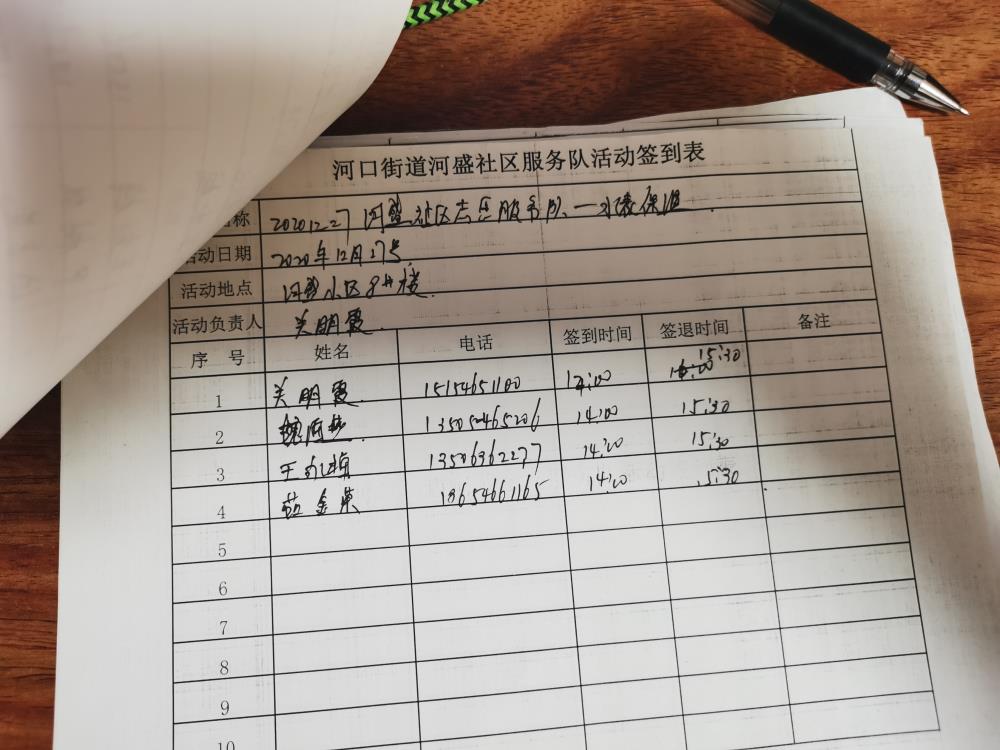 河口街道河盛社区服务队活动签到表
名称 2020.12.27 河盛社区志愿服务队——水表保温
活动日期 2020年12月27号
活动地点 河盛小区8#楼
活动负责人 关明霞
序 号 姓名 电话 签到时间 签退时间 备注
1 关明霞 15154651100 14:00 15:30
2 13505465206 14:00 15:30
3 13506362277 14:00 15:30
4 金英 18654661165 14:00 15:30
5
6
7
8
9
10